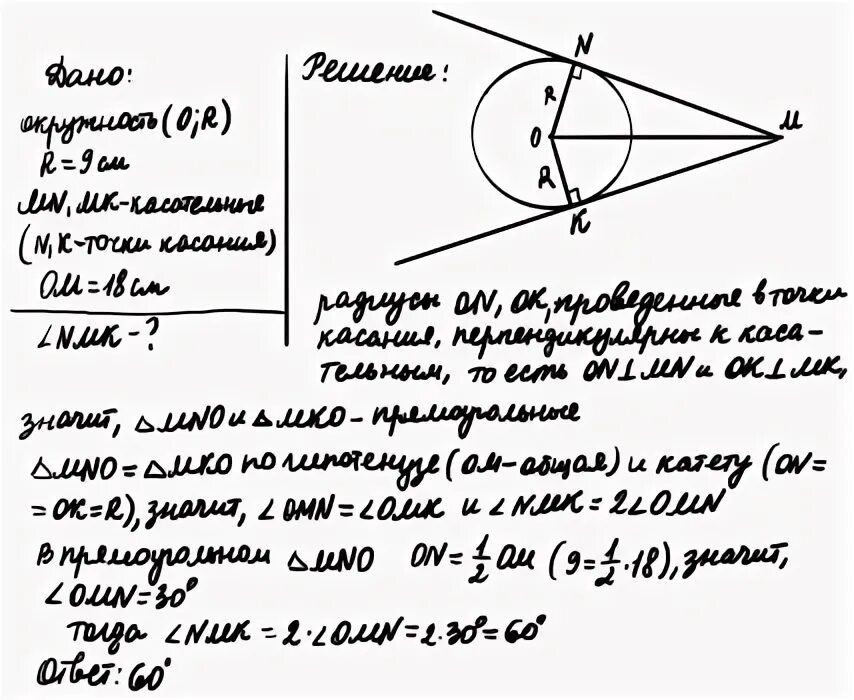 Дано:
окружность (O; R)
R = 9 см
MN, MK - касательные
(N, K - точки касания)
OM = 18 см
∠NMK - ?
Решение:
N
R
O
M
R
K
радиусы ON, OK, проведенные в точки
касания, перпендикулярны к каса-
тельным, то есть ON⊥MN и OK⊥MK,
значит, △MNO и △MKO - прямоугольные
△MNO = △MKO по гипотенузе (OM - общая) и катету (ON =
= OK = R), значит, ∠OMN = ∠OMK и ∠NMK = 2∠OMN
В прямоугольном △MNO ON = 1/2 OM (9 = 1/2 · 18), значит,
∠OMN = 30°
Тогда ∠NMK = 2 · ∠OMN = 2 · 30° = 60°
Ответ: 60°